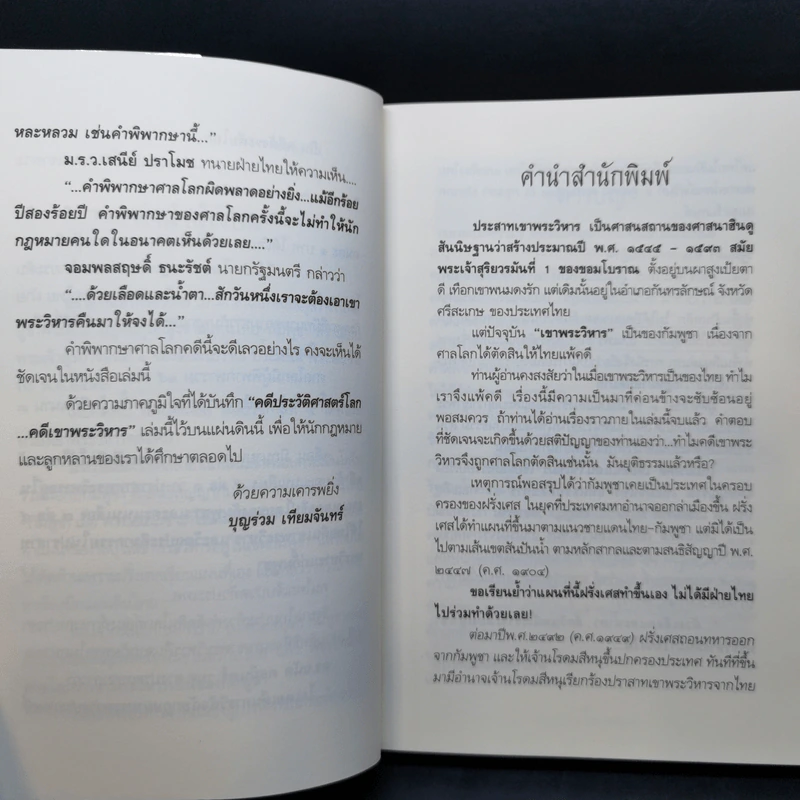 หละหลวม เช่นคำพิพากษานี้..."
ม.ร.ว.เสนีย์ ปราโมช ทนายฝ่ายไทยให้ความเห็น....
"...คำพิพากษาศาลโลกผิดพลาดอย่างยิ่ง...แม้อีกร้อย
ปีสองร้อยปี คำพิพากษาของศาลโลกครั้งนี้จะไม่ทำให้นัก
กฎหมายคนใดในอนาคตเห็นด้วยเลย...."
จอมพลสฤษดิ์ ธนะรัชต์ นายกรัฐมนตรี กล่าวว่า
"....ด้วยเลือดและน้ำตา...สักวันหนึ่งเราจะต้องเอาเขา
พระวิหารคืนมาให้จงได้..."
คำพิพากษาศาลโลกคดีนี้จะดีเลวอย่างไร คงจะเห็นได้
ชัดเจนในหนังสือเล่มนี้
ด้วยความภาคภูมิใจที่ได้บันทึก "คดีประวัติศาสตร์โลก
...คดีเขาพระวิหาร" เล่มนี้ไว้บนแผ่นดินนี้ เพื่อให้นักกฎหมาย
และลูกหลานของเราได้ศึกษาตลอดไป
ด้วยความเคารพยิ่ง
บุญร่วม เทียมจันทร์
คำนำสำนักพิมพ์
ประสาทเขาพระวิหาร เป็นศาสนสถานของศาสนาฮินดู
สันนิษฐานว่าสร้างประมาณปี พ.ศ. ๑๕๔๕ - ๑๕๙๓ สมัย
พระเจ้าสุริยวรมันที่ 1 ของขอมโบราณ ตั้งอยู่บนผาสูงเป้ยตา
ดี เทือกเขาพนมดงรัก แต่เดิมนั้นอยู่ในอำเภอกันทรลักษณ์ จังหวัด
ศรีสะเกษ ของประเทศไทย
แต่ปัจจุบัน "เขาพระวิหาร" เป็นของกัมพูชา เนื่องจาก
ศาลโลกได้ตัดสินให้ไทยแพ้คดี
ท่านผู้อ่านคงสงสัยว่าในเมื่อเขาพระวิหารเป็นของไทย ทำไม
เราจึงแพ้คดี เรื่องนี้มีความเป็นมาที่ค่อนข้างจะซับซ้อนอยู่
พอสมควร ถ้าท่านได้อ่านเรื่องราวภายในเล่มนี้จบแล้ว คำตอบ
ที่ชัดเจนจะเกิดขึ้นด้วยสติปัญญาของท่านเองว่า...ทำไมคดีเขาพระ
วิหารจึงถูกศาลโลกตัดสินเช่นนั้น มันยุติธรรมแล้วหรือ?
เหตุการณ์พอสรุปได้ว่ากัมพูชาเคยเป็นประเทศในครอบ
ครองของฝรั่งเศส ในยุคที่ประเทศมหาอำนาจออกล่าเมืองขึ้น ฝรั่ง
เศสได้ทำแผนที่ขึ้นมาตามแนวชายแดนไทย-กัมพูชา แต่มิได้เป็น
ไปตามเส้นเขตสันปันน้ำ ตามหลักสากลและตามสนธิสัญญาปี พ.ศ.
๒๔๔๗ (ค.ศ. ๑๙๐๔)
ขอเรียนย้ำว่าแผนที่นี้ฝรั่งเศสทำขึ้นเอง ไม่ได้มีฝ่ายไทย
ไปร่วมทำด้วยเลย!
ต่อมาปีพ.ศ.๒๔๙๒ (ค.ศ.๑๙๔๙) ฝรั่งเศสถอนทหารออก
จากกัมพูชา และให้เจ้านโรดมสีหนุขึ้นปกครองประเทศ ทันทีที่ขึ้น
มามีอำนาจเจ้านโรดมสีหนุเรียกร้องปราสาทเขาพระวิหารจากไทย